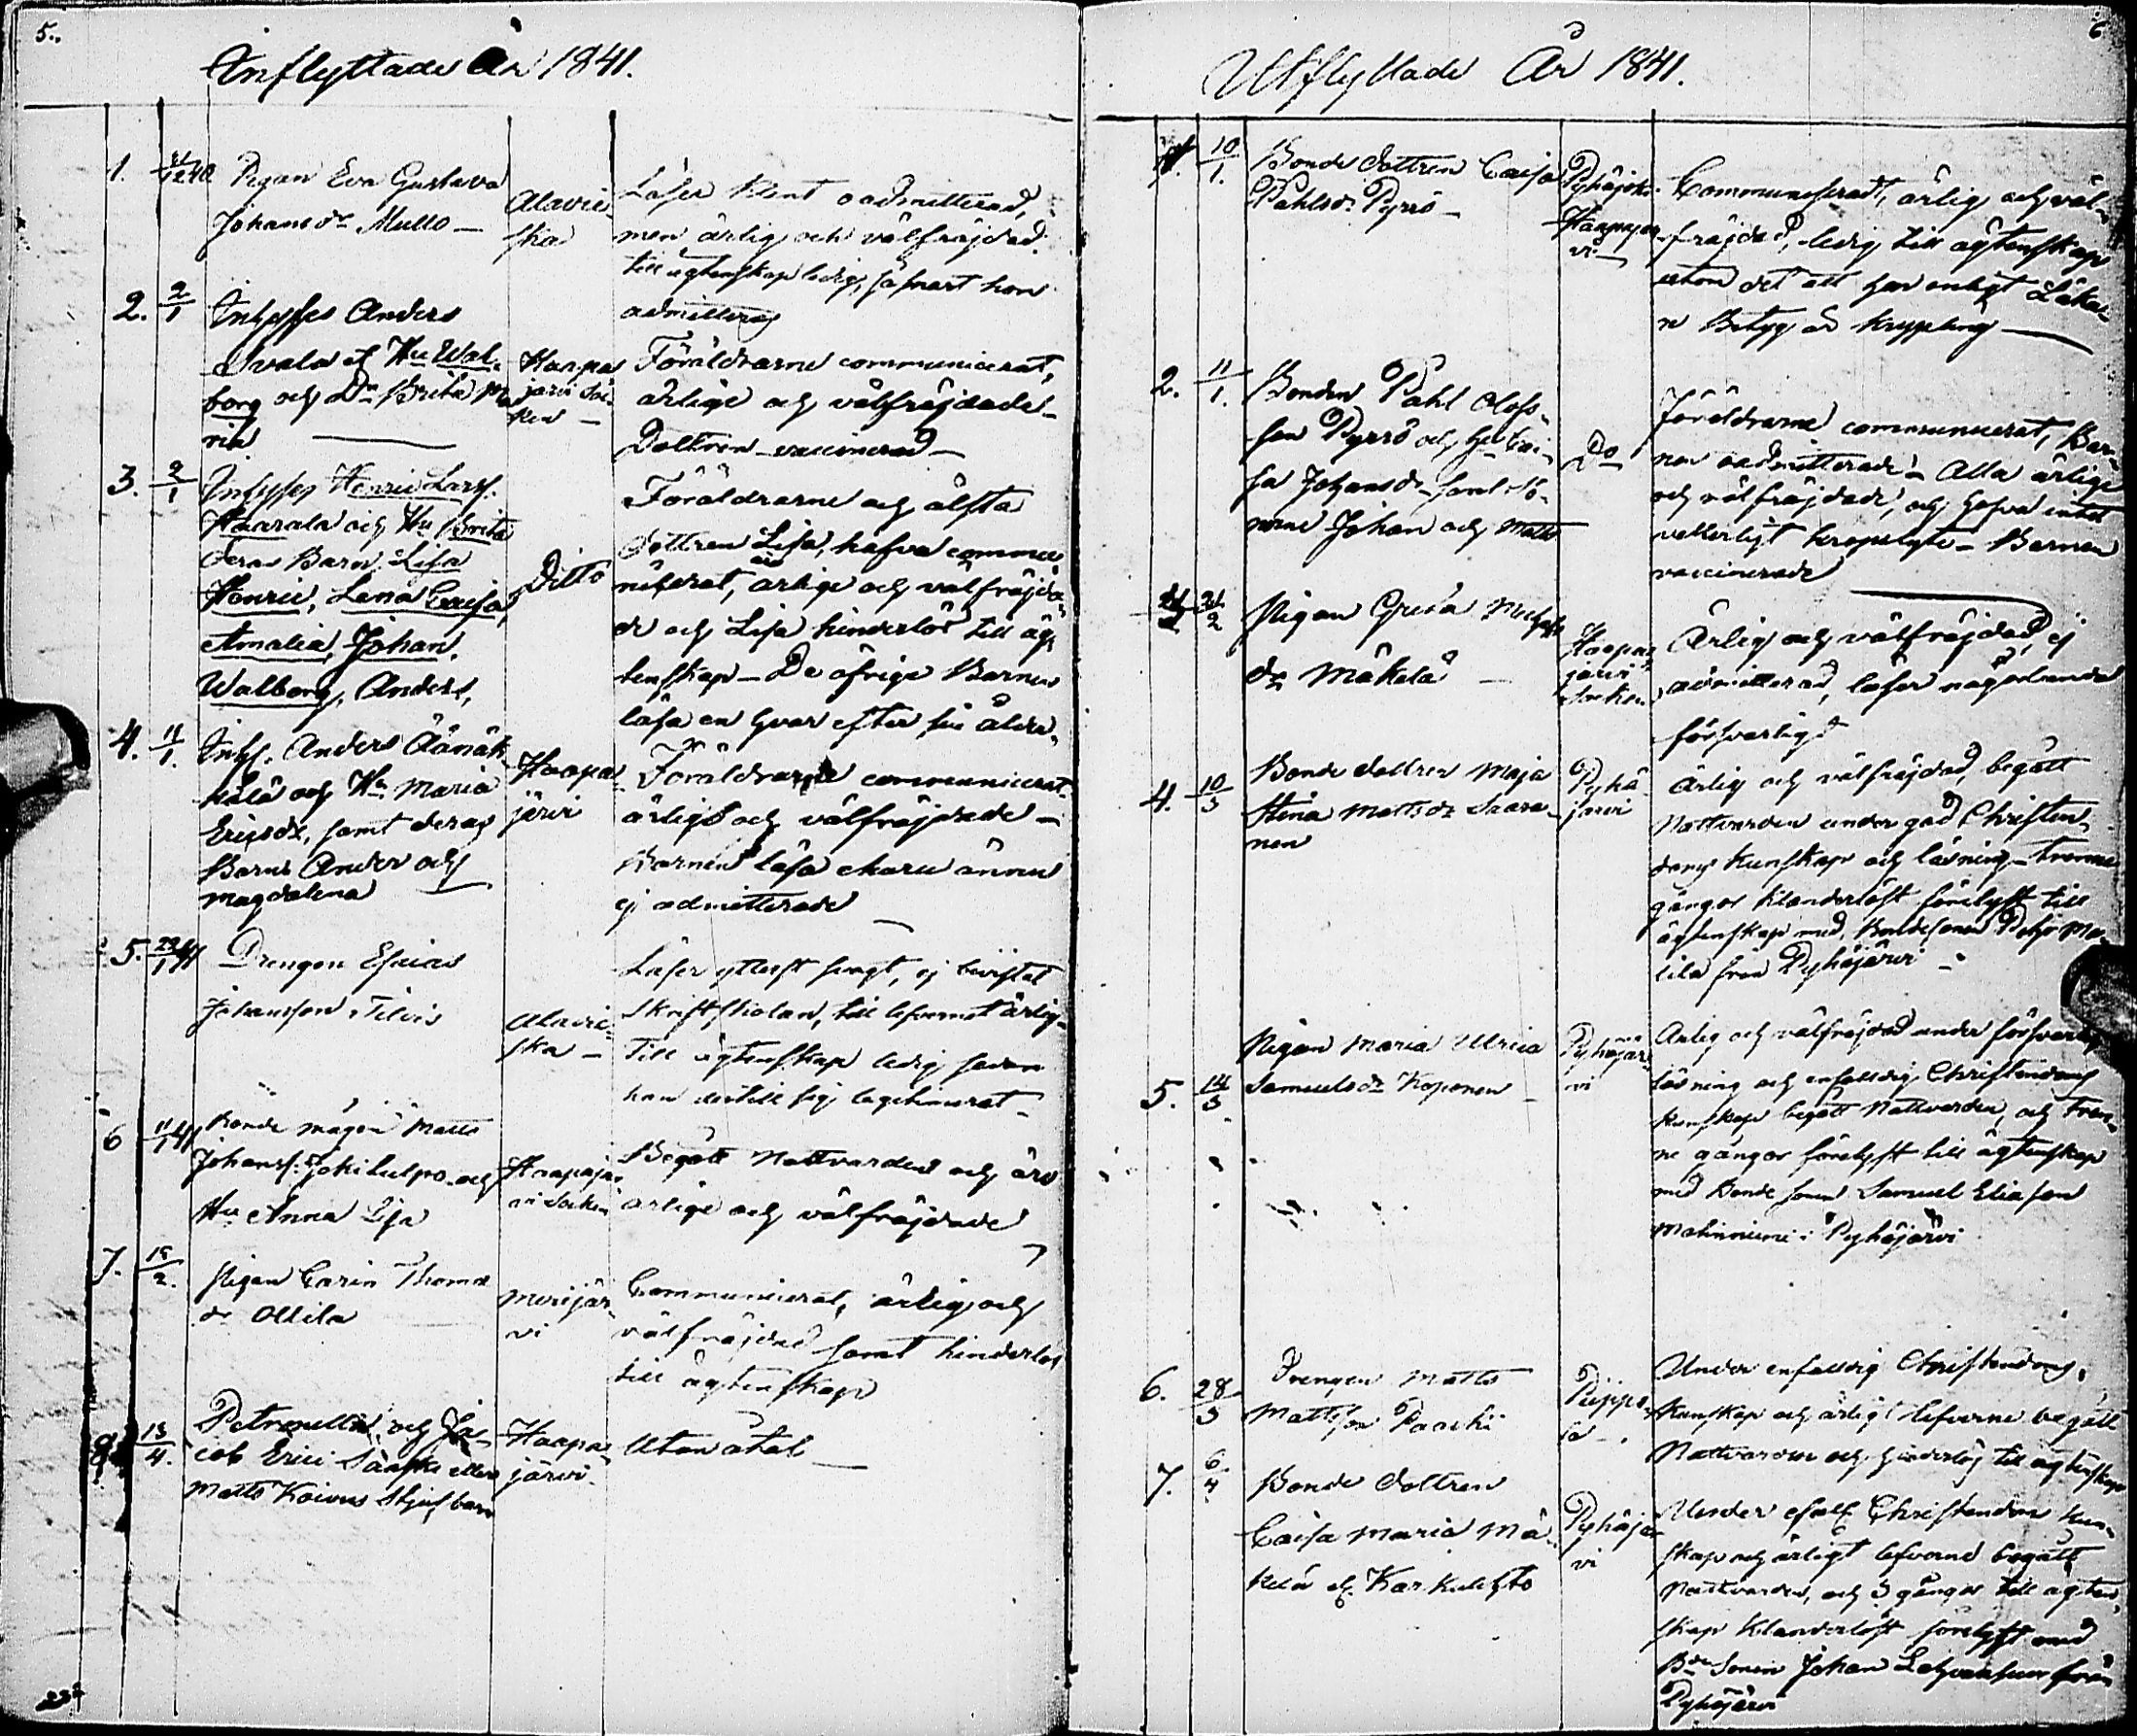 5.
Inflyttade År 1841.
1. 12 40 Pigan Eva Gustava
Johans dr Mullo —
Alavie-
ska
Läser klent oadmitterad,
men ärlig och välfräjdad.
till ägtenskap ledig, så snart hon
admitteras
2. 2/1 Inhyses Anders
Svala och Hu Wal-
borg och Dr Brita Ma-
ria
Haapa
järvi Soc-
ken —
Föräldrarne communicerat,
ärlige och välfräjdade —
Dottren vaccinerad —
3. 2/1 Inhyses Henric Larss.
Haarala och Hu Brita
deras Barn Lisa
Henric, Lena Caisa,
Amalia, Johan.
Walborg, Anders,
Ditto
Föräldrarne och älsta
dottren Lisa, hafva commu-
nicerat, ärlige och välfräjda-
de och Lisa hinderlös till äg-
tenskap — De öfrige Barnen
läsa en hvar efter sin ålder.
4. 11/1. Inhs. Anders
kälä och Hu Maria
Ericsdr, samt deras
Barn Anders och
Magdalena
Haapa-
järvi
Föräldrarne communicerat
ärlige och välfräjdade —
Barnen läsa ännu
ej admitterade
5. 29/1 41 Drengen Esaias
Johansson Tilvis
Alavie-
ska —
Läser ytterst svagt, ej bevistat
Skriftskolan, till lefvernet ärlig —
Till ägtenskap ledig sedan
han dertill sig legitimerat —
6 11/1 41 Bonde mågen Matts
Johanss. Jokikulpo och
Hu Anna Lisa
Haapajär-
vi Socken
Begått Nattvarden och äro
ärlige och välfräjdade
7. 18/2. Pigan Carin Thomæ
dr Ollila
Merijär-
vi
Communicerat, ärlig och
välfräjdad samt hinderlös
till ägtenskap
8 13/4. Petronella och Ja-
cob Erici eller
Matts Koivus Styfbarn
Haapa-
järvi.
Utan åtal —
6
Utflyttade År 1841.
1. 10/1. Bonde dottren Caisa
Pahlsdr Pyrrö —
Pyhäjoki
Haapajär-
vi —
Communicerat, ärlig och väl-
fräjdad, ledig till ägtenskap
utom det att hon enligt Läka-
re Betyg är krympling —
2. 11/1. Bonden Pahl Olofs-
son Pyrrö och Hu Cai-
sa Johansdr samt Sö-
nerne Johan och Matts
Do
Föräldrarne communicerat, Bar-
nen oadmitterade — Alla ärlige
och välfräjdade, och hafva intet
vetterligt kroppslyte — Barnen
vaccinerade
2 Pigan Greta Michels
dr Mäkelä —
Haapa-
järvi
Socken
Ärlig och välfräjdad, ej
admitterad, läser någorlunda
försvarligt
4. 10/3 Bonde dottren Maja
Stina Mattsdr Saara-
nen
Pyhä-
järvi
Ärlig och välfräjdad, begått
Nattvarden under god Christen-
doms kunskap och läsning — Trenne
gångor klanderlöst förelyst till
ägtenskap med Bondesonen
från Pyhäjärvi —
5. 14/3 Pigan Maria Ulrica
Samuelsdr Koponen —
Pyhäjär-
vi
Ärlig och välfräjdad under försvarlig
läsning och enfaldig Christendoms
kunskap begått Nattvarden, och Tren-
ne gångor förelyst till ägtenskap
med Bonde sonen Samuel Eliasson
Matinniemi i Pyhäjärvi
6. 28/3 Drengen Matts
Mattsson Paachi
Pippo-
la —
Under enfaldig Christendoms
kunskap och ärligt lefverne begått
Nattvarden och hinderlös till ägtenskap
7. 6/4 Bonde dottren
Caisa Maria Mä-
kelä
Pyhäjär-
vi
Under Christendoms kun-
skap och ärligt lefverne begått
Nattvarden, och 3 gångor till ägten-
skap klanderlöst förelyst med
Bde Sonen Johan från
Pyhäjärvi